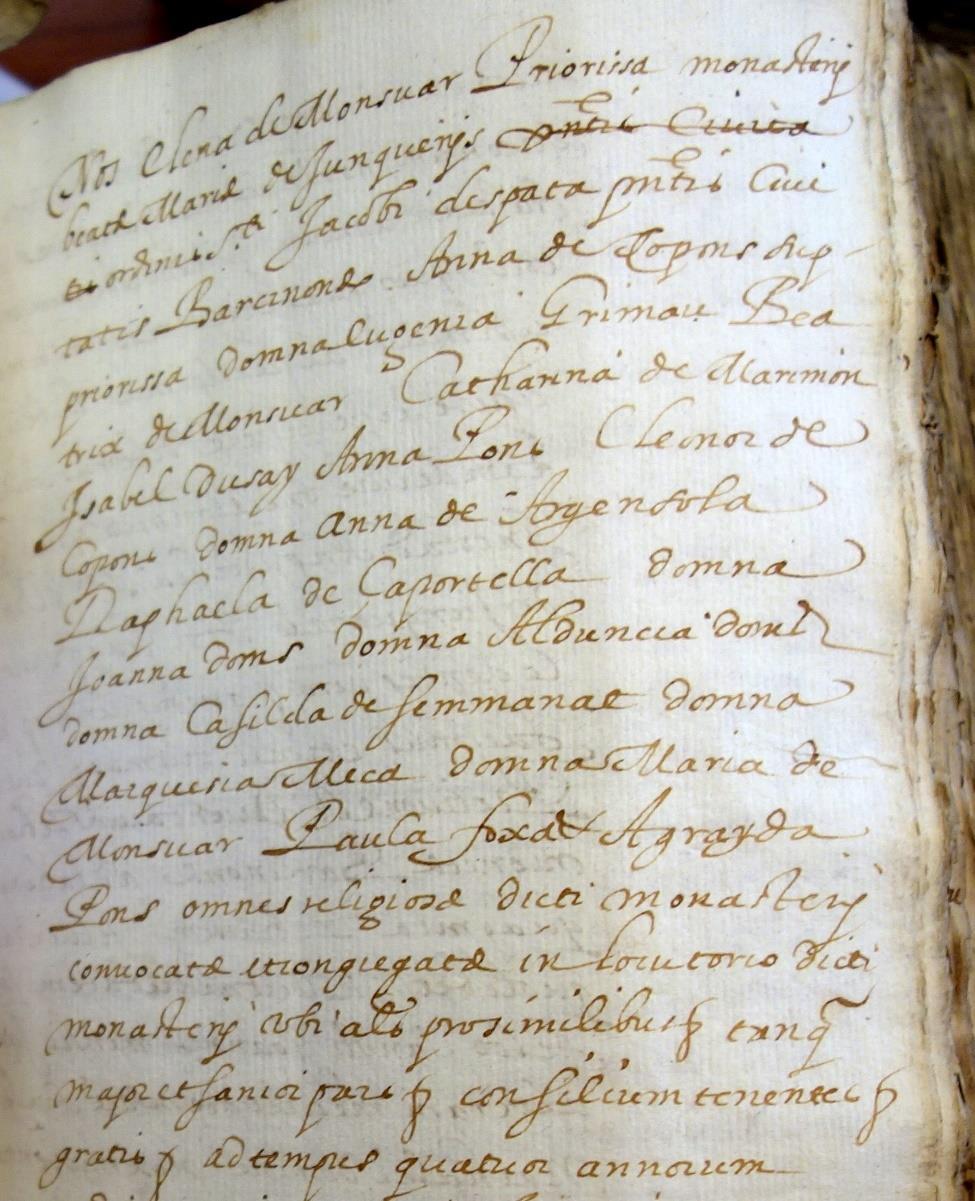 Nos Elena de Monsuar Priorissa monasterij
beatæ Mariæ de Junquerijs pntis Civita
ti ordinis Sti Jacobi despata pntis Civi
tatis Barcinonæ Anna de Copons sup
priorissa domna Eugenia Grimau Bea
trix de Monsuar Catharina de Marimon
Isabel Dusay Anna Pons Eleonor de
Copons domna Anna de Argensola
Raphaela de Çaportella domna
Joanna doms domna Alduncia doms
domna Casilda de Semmanat domna
Marquesia Meca domna Maria de
Monsuar Paula foxa et Agrayda
Pons omnes religiosæ dicti monasterij
convocatæ et congregatæ in locutorio dicti
monasterij ubi als prosimilibus tanq
major et sanior pars consilium tenentes
gratis ad tempus quatuor annorum